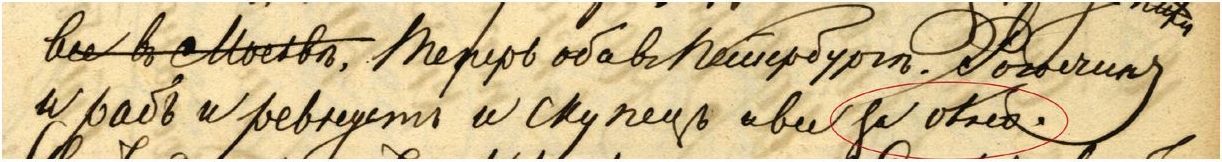 все въ Москвѣ. Теперь оба въ Петербургѣ. Рогожинъ
и рабъ и ревнуетъ и скупецъ и все за окно.